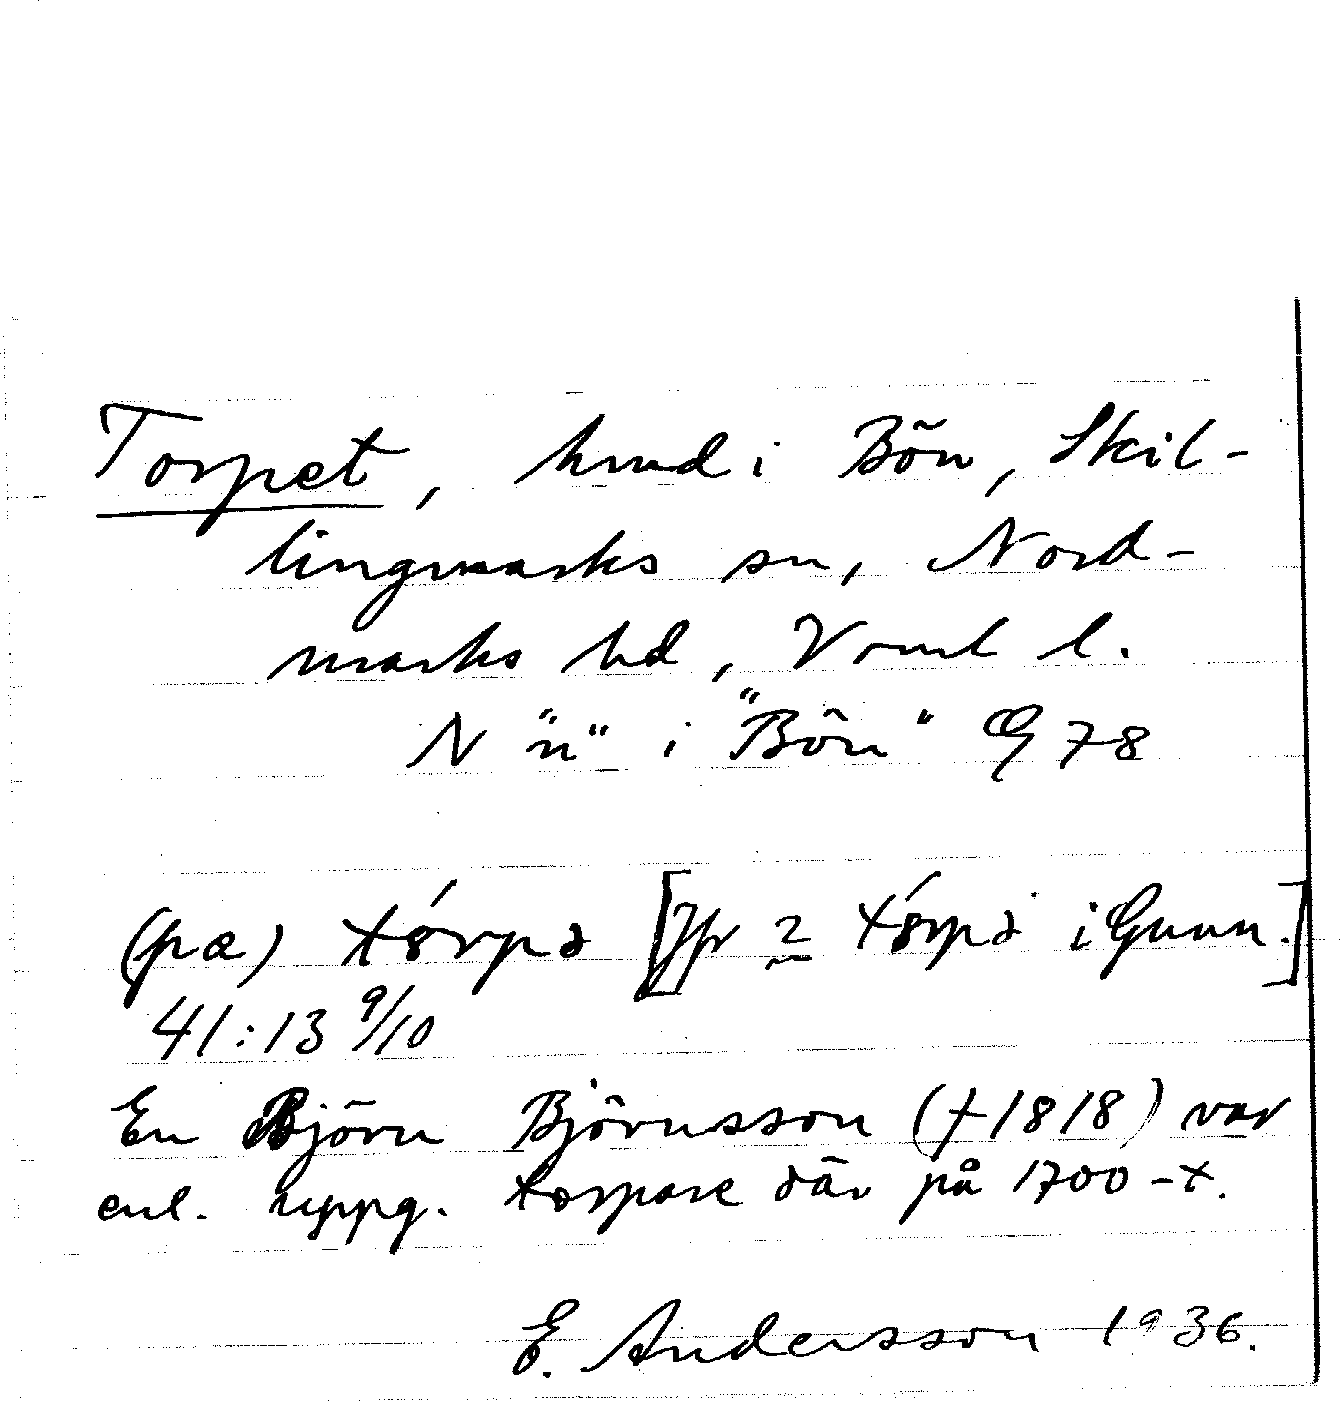 Torpet, hmd i Bön, Skil-
lingmarks sn, Nord-
marks hd, Vrml l.
N "n" i "Bön" G 78
(pa) tórpə [Jfr 2 tórpə i Gunn.]
41:13 9/10
En Björn Björnsson (†1818) var
enl. uppg. torpare där på 1700-t.
E. Andersson 1936.